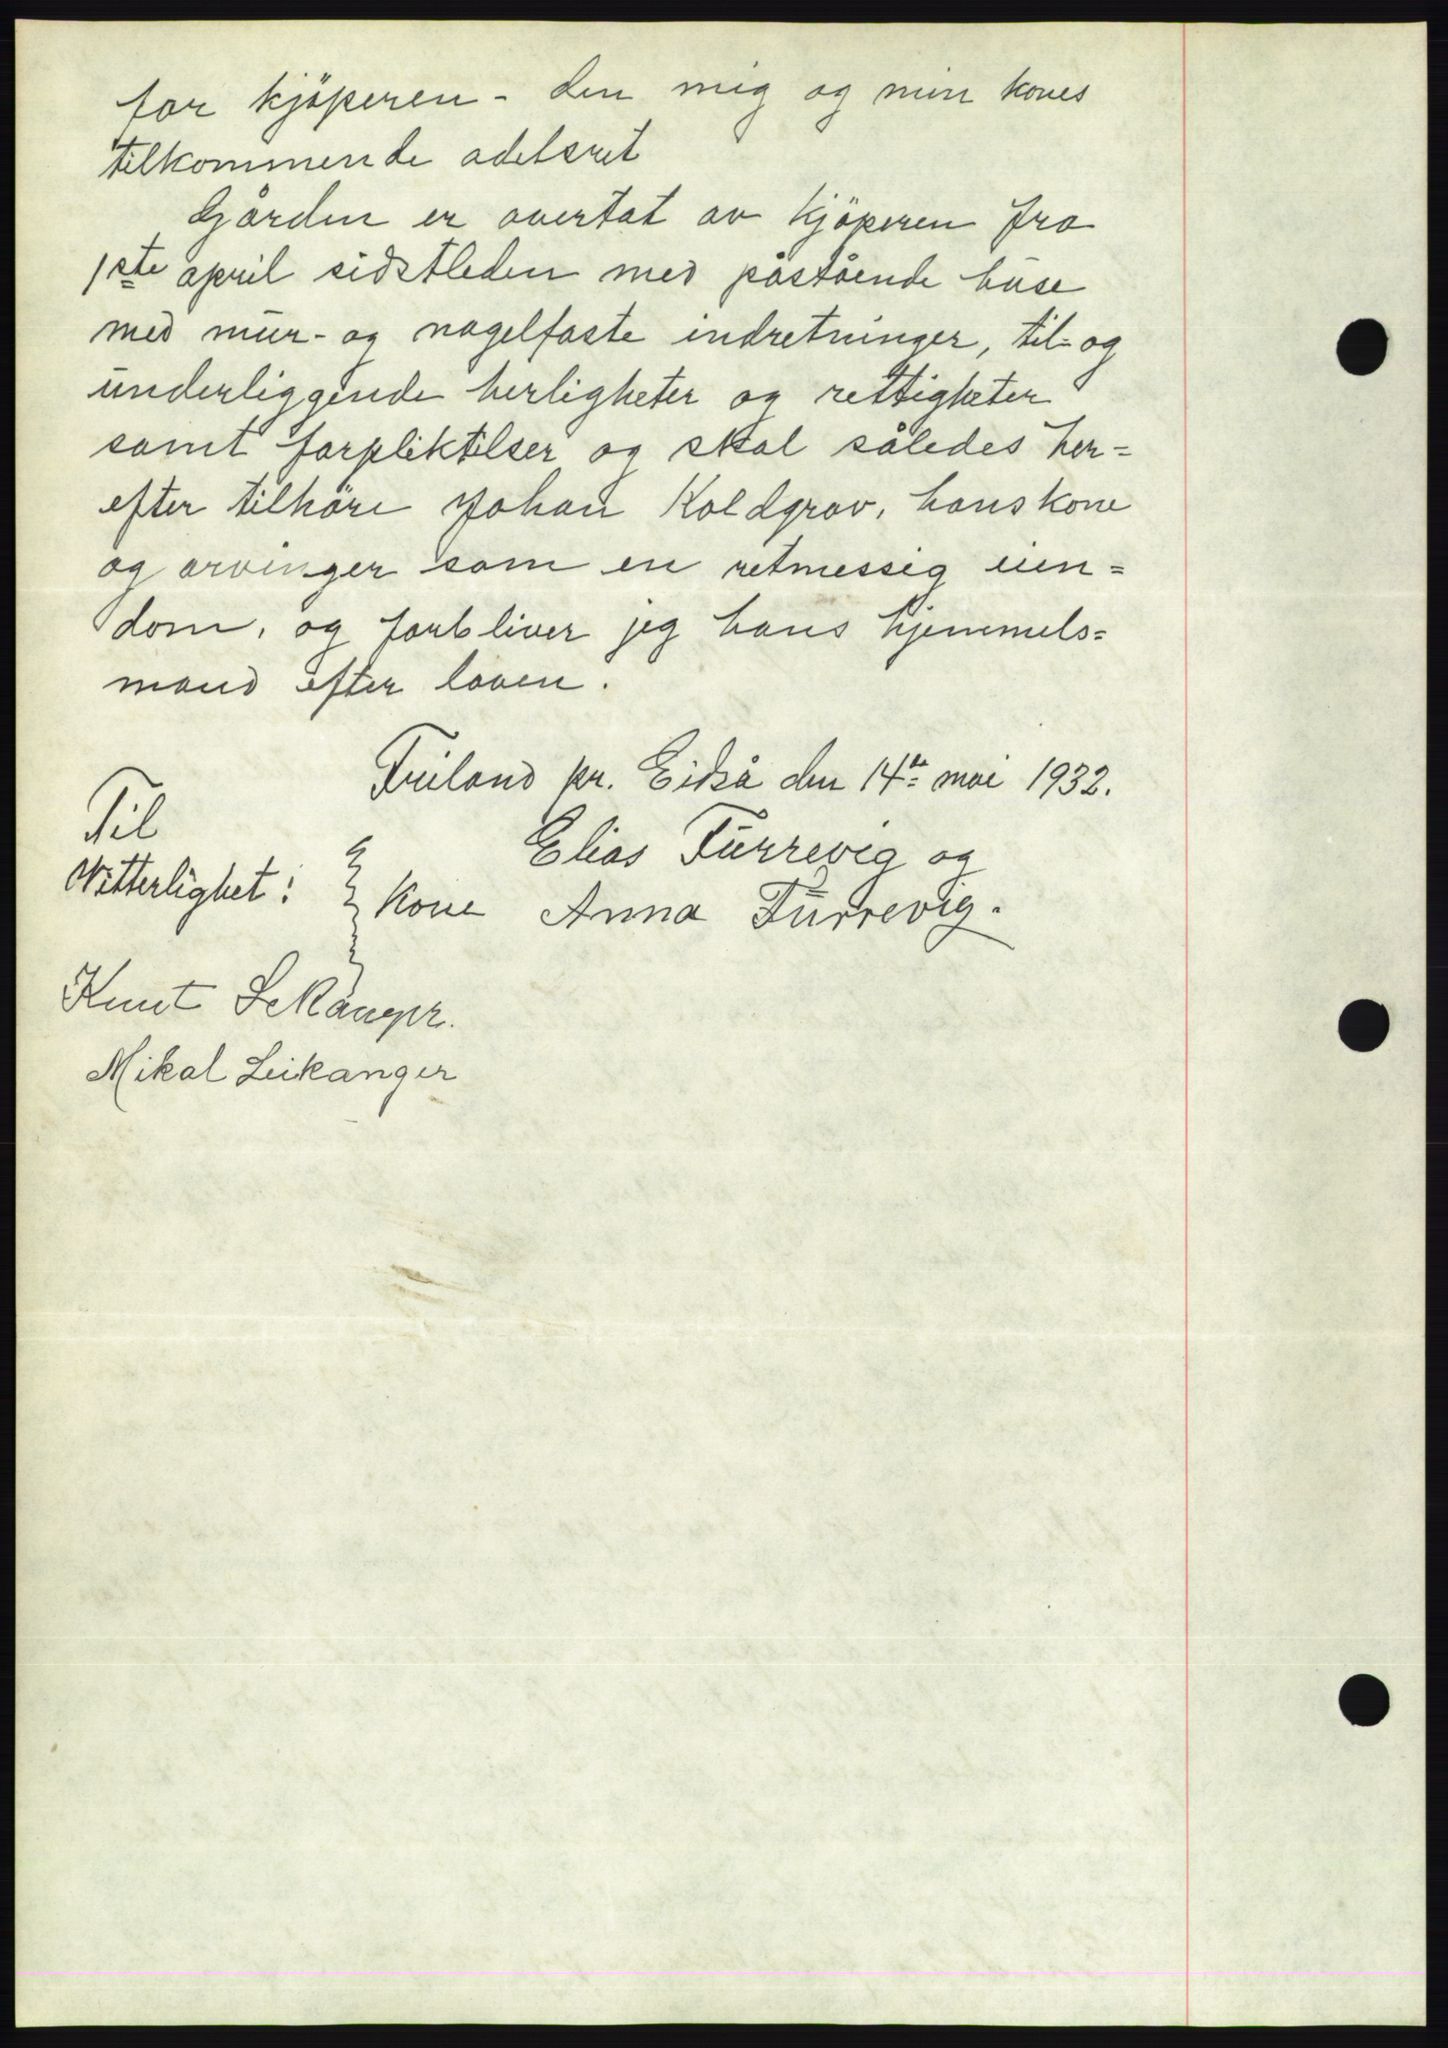 for kjöperen - den mig og min kones
tilkommende odelsret
Gården er overtat av kjöperen fra
1ste april sidstleden med påstående huse
med mur- og nagelfaste indretninger, til- og
underliggende herligheter og rettigheter
samt forpliktelser og skal således her=
efter tilhöre Johan Koldgrav, hans kone
og arvinger som en retmessig eien=
dom, og forbliver jeg hans hjemmels=
mand efter loven.
Friland pr. Eidså den 14de mai 1932.
Til
Vitterlighet:
Elias Furrevig og
kone Anna Furrevig.
Knut Leikanger.
Mikal Leikanger